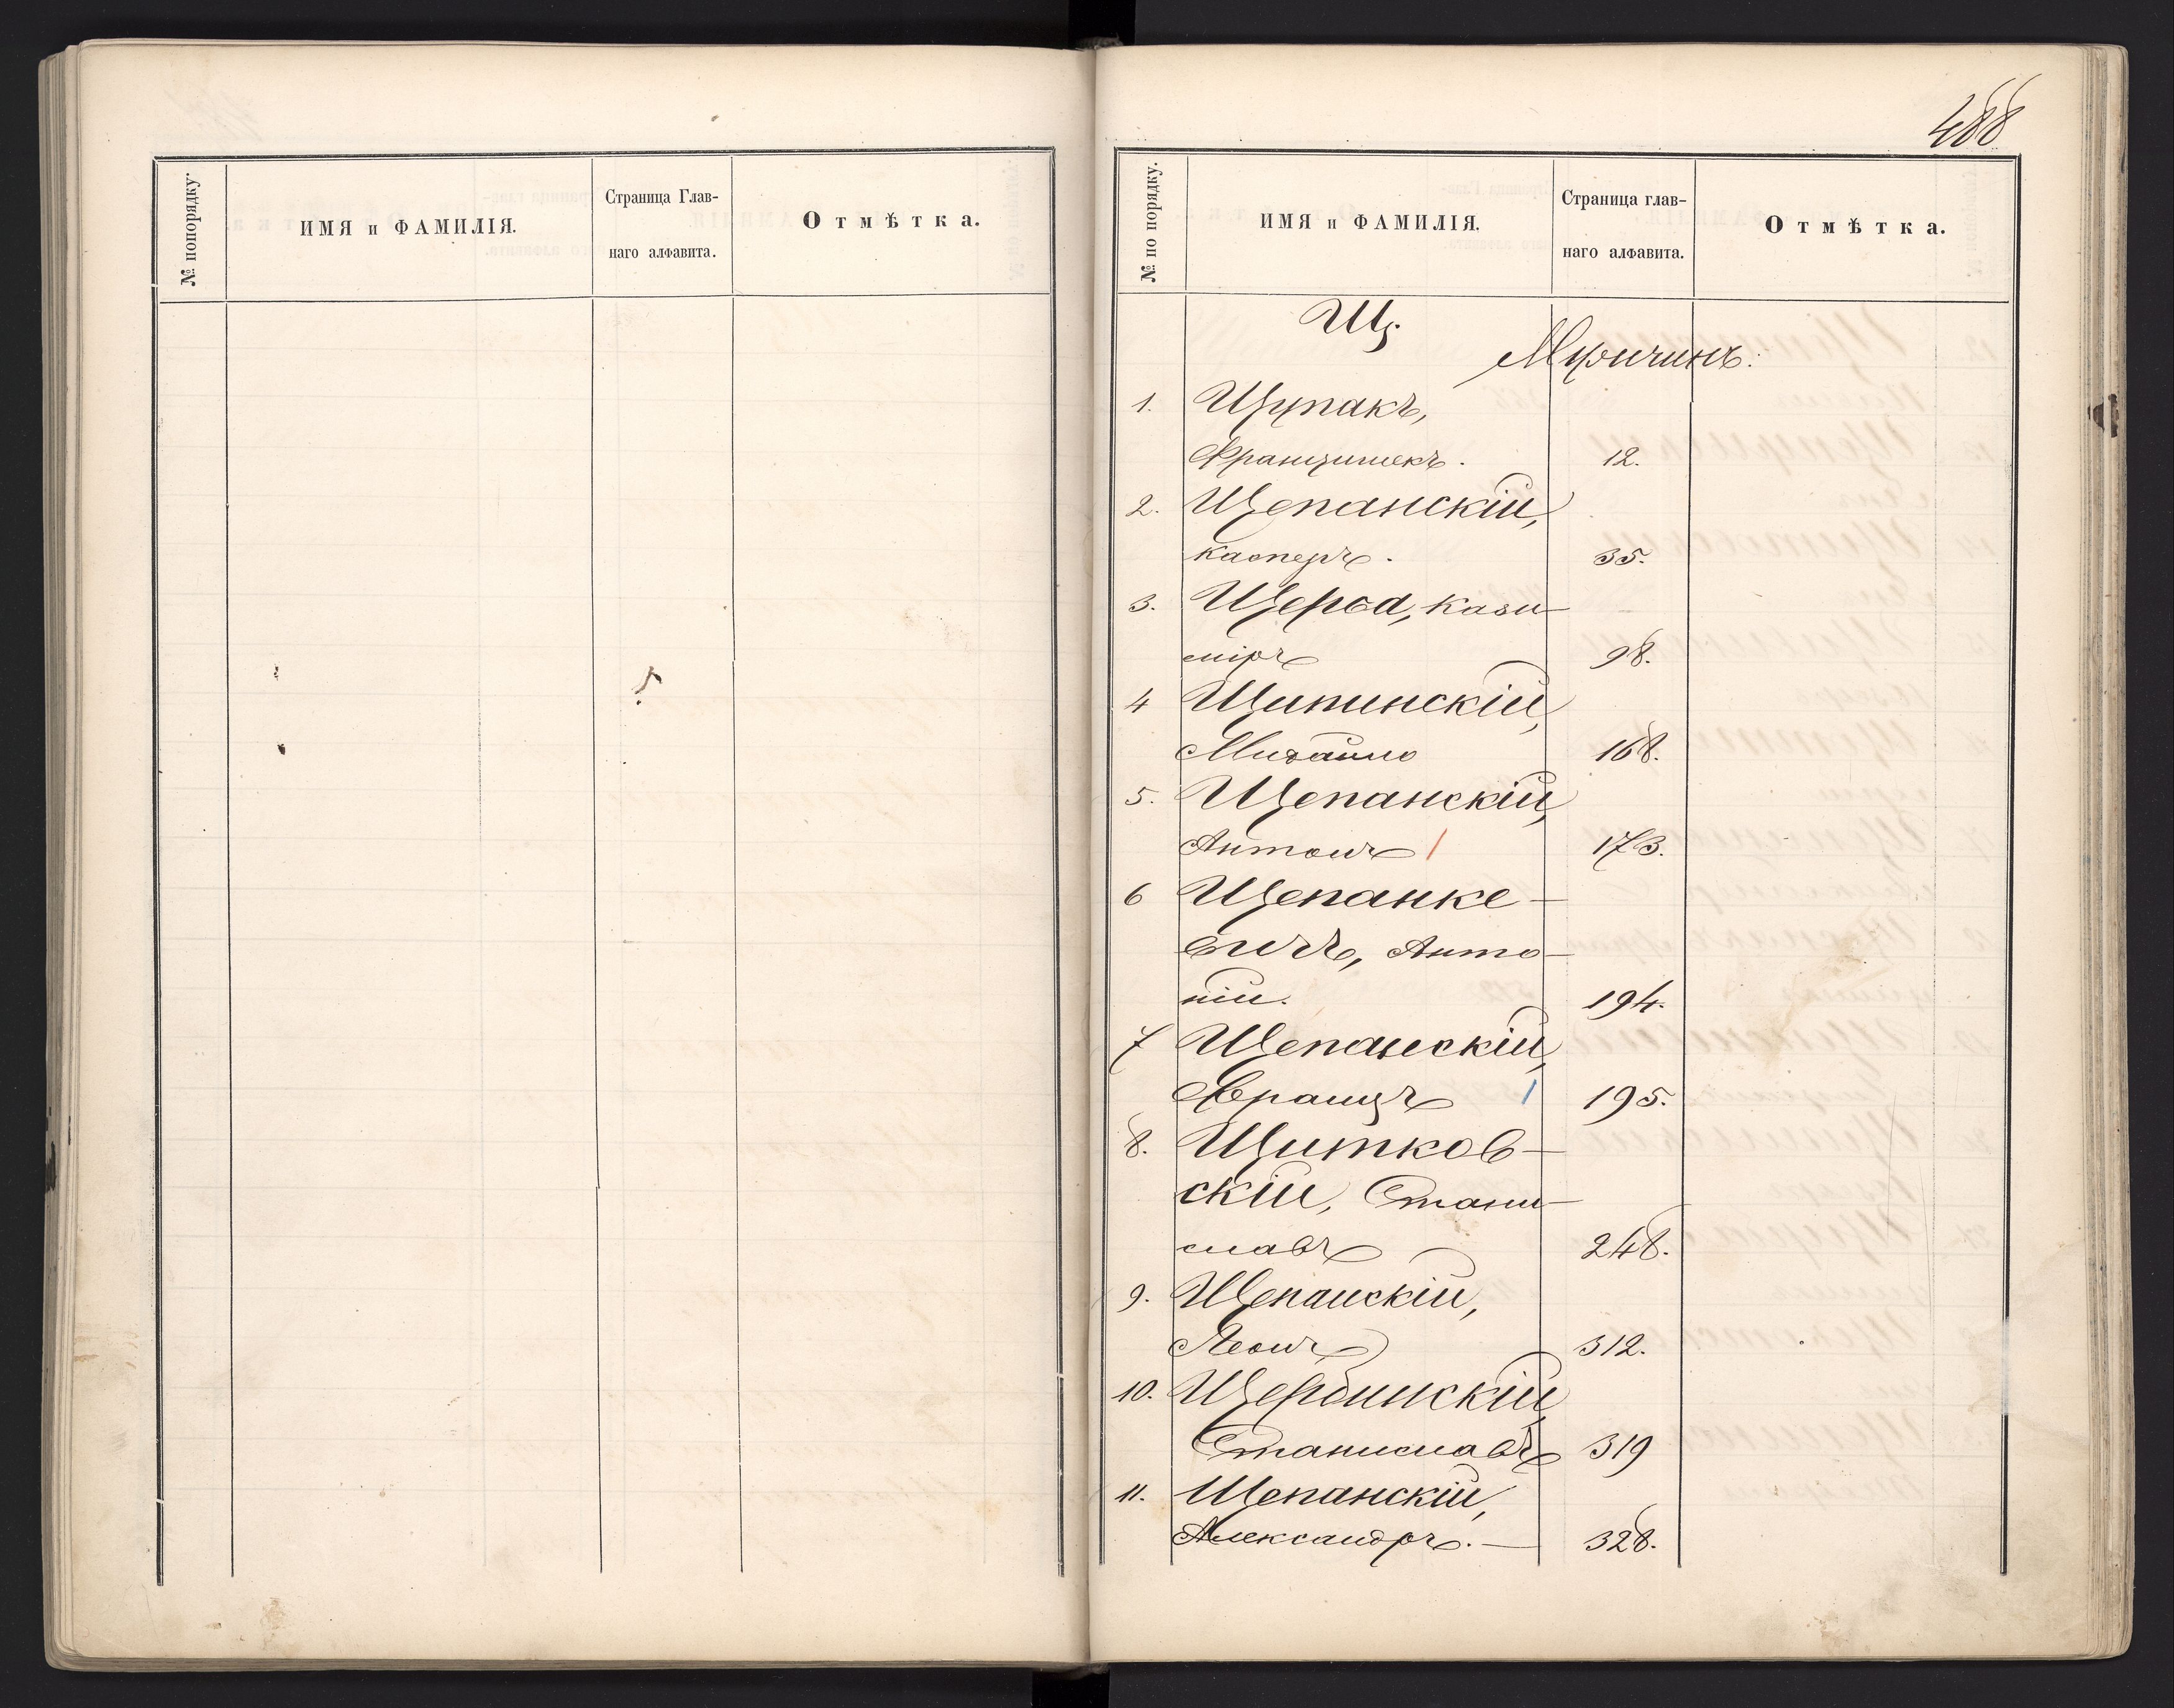 № попорядку.
ИМЯ и ФАМИЛІЯ.
Страница Глав-
наго алфавита.
Отмѣтка.
488
№ по порядку.
ИМЯ и ФАМИЛІЯ.
Страница глав-
наго алфавита.
Отмѣтка.
Щ.
Мужчинъ:
1. Щупакъ,
Францишекъ. 12.
2. Щепанскій,
Касперъ. 35.
3. Щерба, Кази-
міръ 98.
4 Щипинскій,
Михаило 168.
5. Щепанскій,
Антонъ 173.
6 Щепанке-
вичъ, Анто-
ній. 194.
7 Щепанскій,
Францъ 195.
8. Щитков-
скій, Стани-
славъ 248.
9. Щепанскій,
Леонъ 312.
10. Щербинскій,
Станиславъ 319
11. Щепанскій,
Александръ. 328.